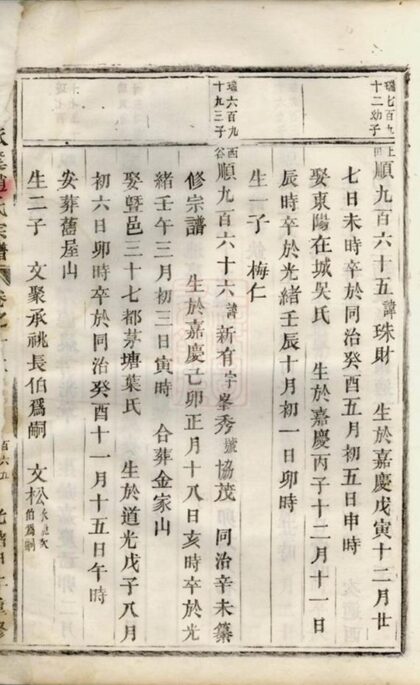 瑞七百九
十二幼子
上田
順九百六十五諱珠財 生於嘉慶戊寅十二月廿
七日未時卒於同治癸酉五月初五日申時
娶東陽在城吳氏 生於嘉慶丙子十二月十一日
辰時卒於光緒壬辰十月初一日卯時
生一子 梅仁
瑞六百九
十九三子
西谷
順九百六十六諱新有字峯秀號協茂同治辛未纂
修宗譜 生於嘉慶己卯正月十八日亥時卒於光
緒壬午三月初三日寅時 合葬金家山
娶暨邑三十七都茅塘葉氏 生於道光戊子八月
初六日卯時卒於同治癸酉十一月十五日午時
安葬舊屋山
生二子 文聚承祧長伯爲嗣 文松承祧次伯爲嗣
氏宗譜 卷之十
百六五